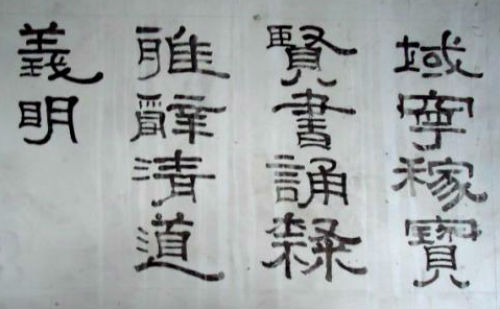 域寧稼寶
賢書誦隸
雅辭清道
義明